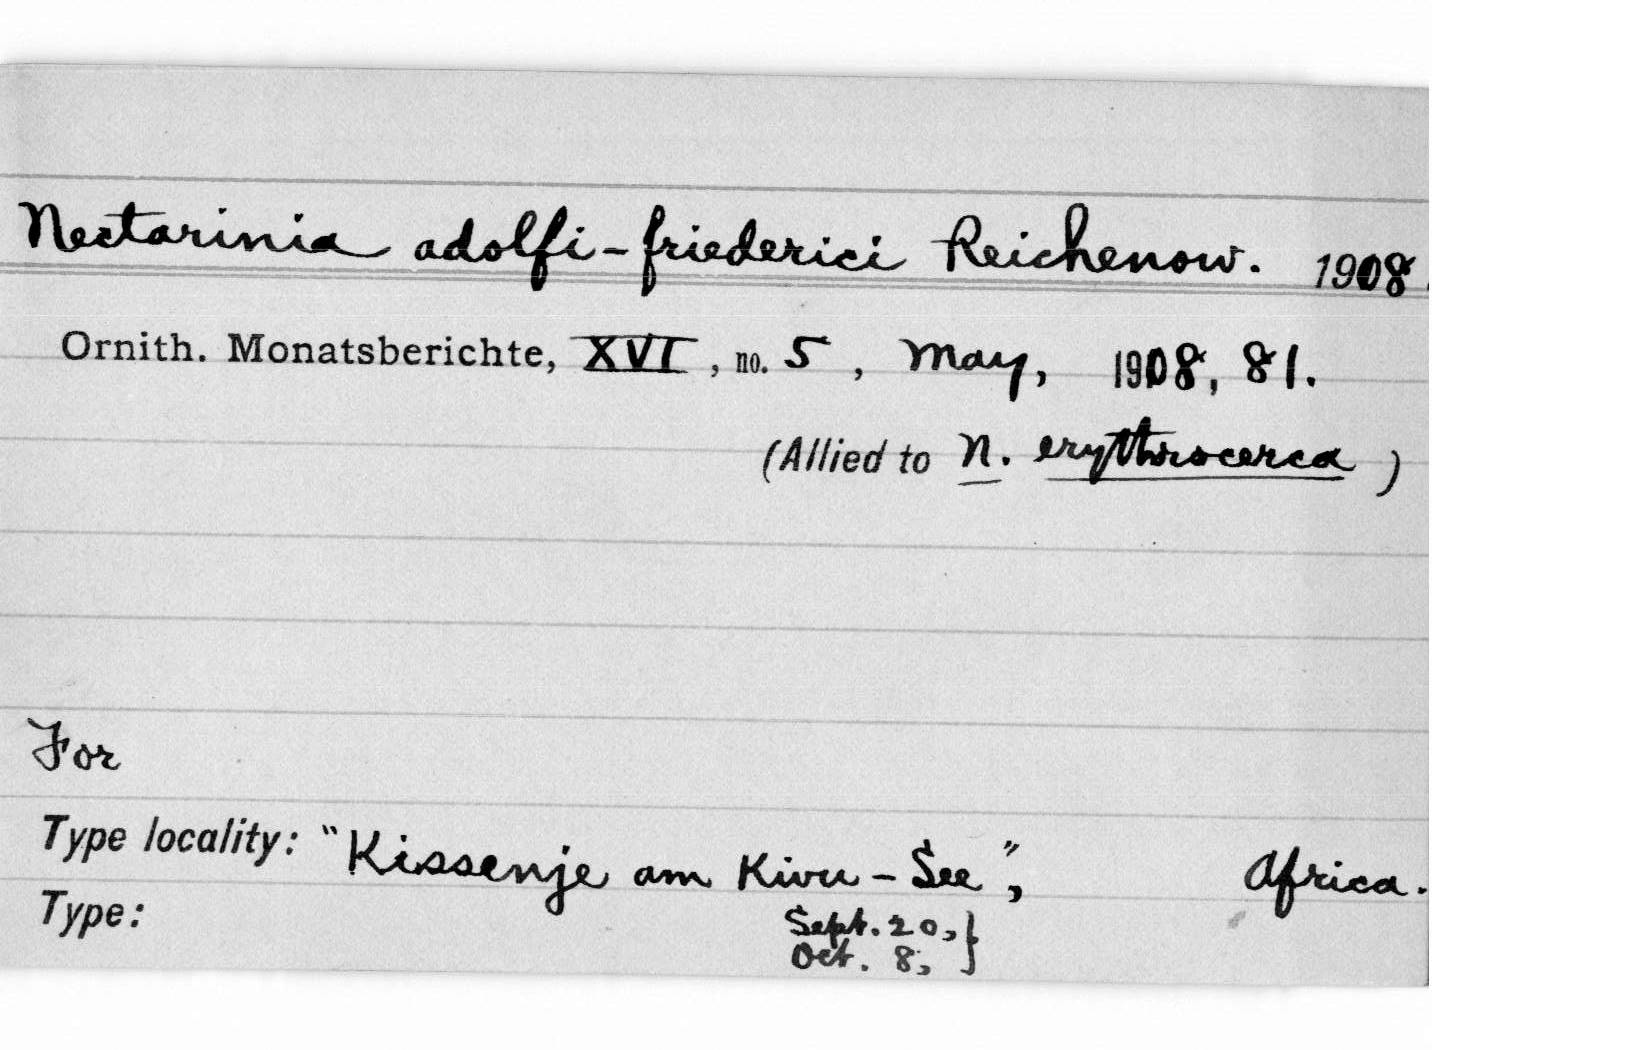 Nectarinia adolfi-friederici Reichenow. 1908.
Ornith. Monatsberichte, XVI, no. 5, May, 1908, 81.
(Allied to N. erythrocerca)
For
Type locality: "Kissenje am Kivu-See", Africa.
Type: Sept. 20,}
Oct. 8,}